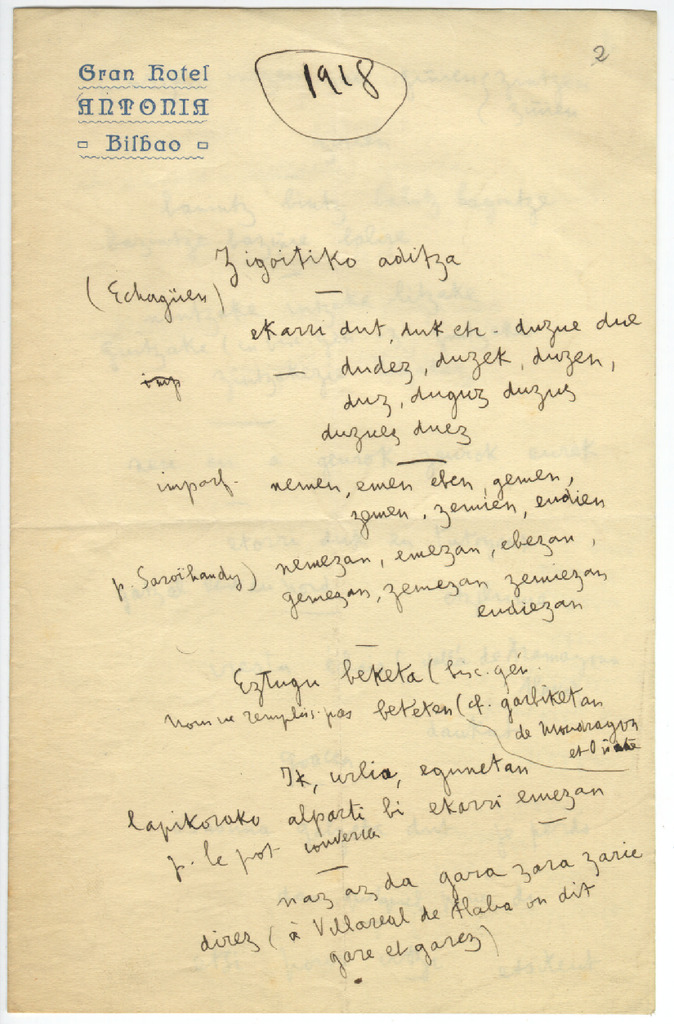 Gran Hotel
ANTONIA
Bilbao
1918
2
Zigoitiko aditza
(Echagüen)
ekarri dut, duk etc. duzue due
imp — dudez, duzek, duzen,
duz, duguz duzuz
duzuez duez
imparf. nemen, emen eben, gemen,
zemen, zemien, eudien
p. Saroïhandy) nemezan, emezan, ebezan,
gemezan, zemezan zemiezan
eudiezan
Eztugu beketa (bisc. gén.
nous ne remplis. pas beteten (cf. garbiketan
de Mondragon
et Oñate
Ik, urlia, egunetan
lapikorako alparti bi ekarri emezan
p. le pot
naz az da gara zara zarie
direz (à Villareal de Alaba on dit
gare et garez)